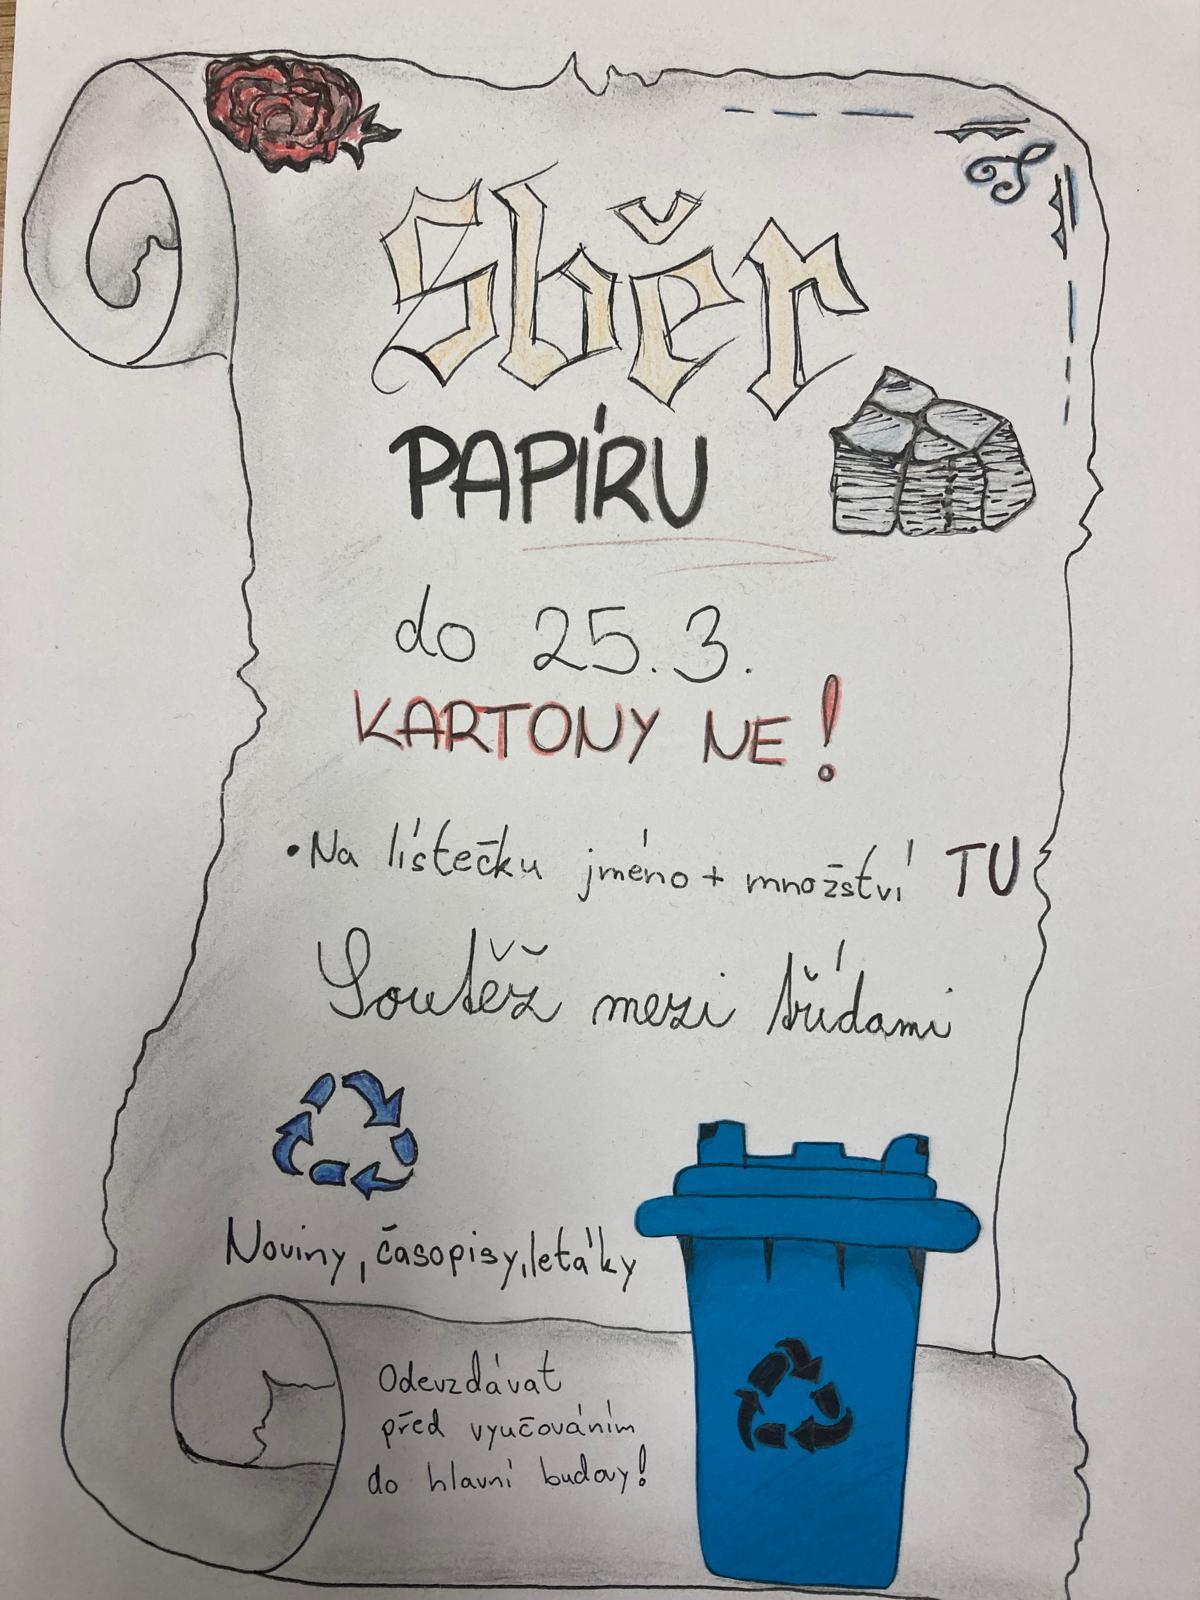 Sběr
PAPÍRU
do 25.3.
KARTONY NE!
•Na lístečku jméno + množství TU
Soutěž mezi třídami
Noviny, časopisy, letáky
Odevzdávat
před vyučováním
do hlavní budovy!